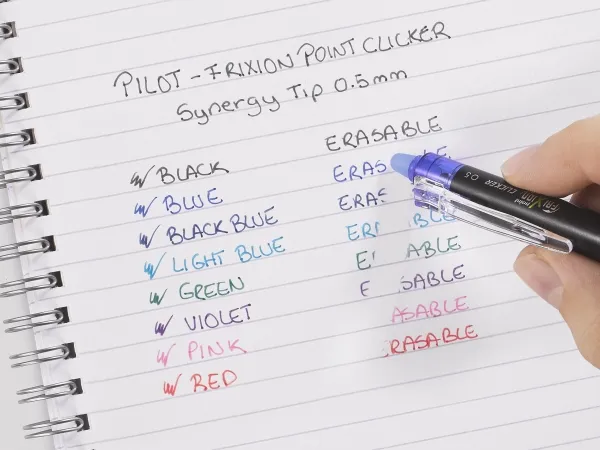 PILOT - FRIXION POINT CLICKER
Synergy Tip 0.5mm
ERASABLE
BLACK
BLUE ERAS LE
BLACK BLUE ERAS
LIGHT BLUE ERI BLE
GREEN E ABLE
VIOLET E SABLE
PINK ASABLE
RED RASABLE
FRIXION CLICKER 0.5